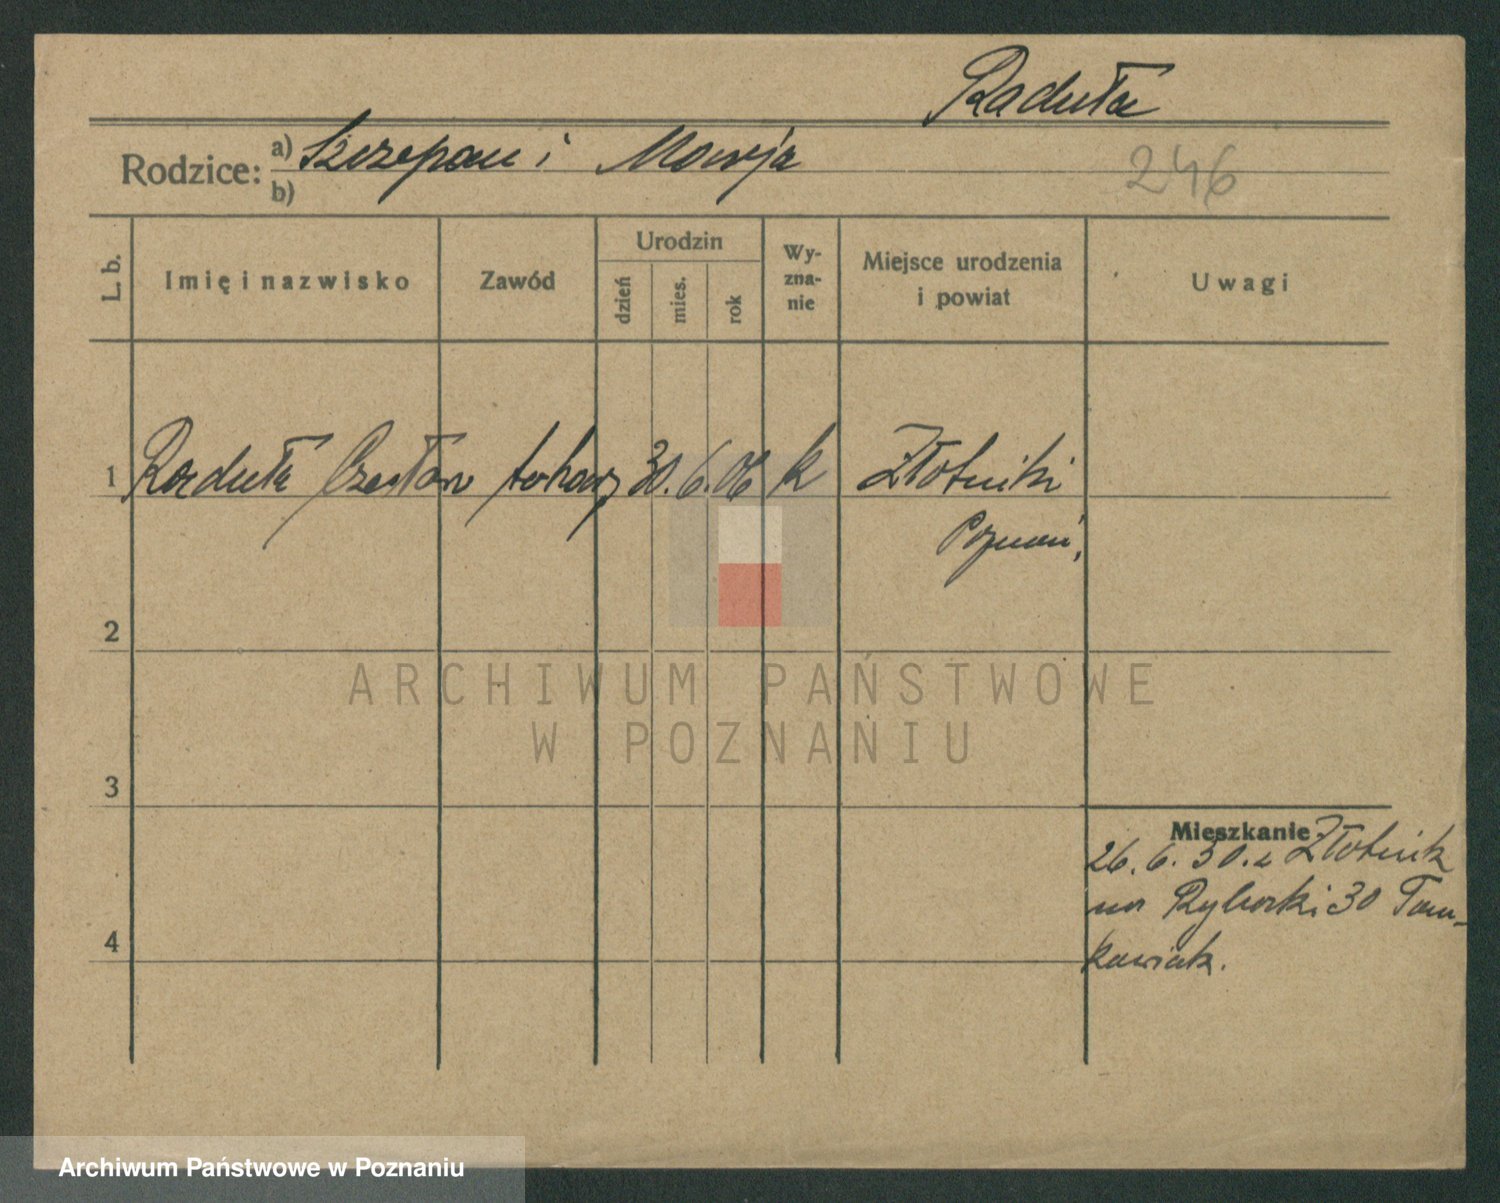 Raduła
Rodzice: a) Szczepan i Marja
b)
246
L. b.
Imię i nazwisko
Zawód
Urodzin
dzień
mies.
rok
Wy-
zna-
nie
Miejsce urodzenia
i powiat
Uwagi
1 Raduła Czesław tokarz 30. 6. 06 k Złotniki
Poznań,
2
3
4
Mieszkanie
26. 6. 30. z Złotnik
na Rybaki 30 Tom-
kowiak.
ARCHIWUM PAŃSTWOWE
W POZNANIU
Archiwum Państwowe w Poznaniu